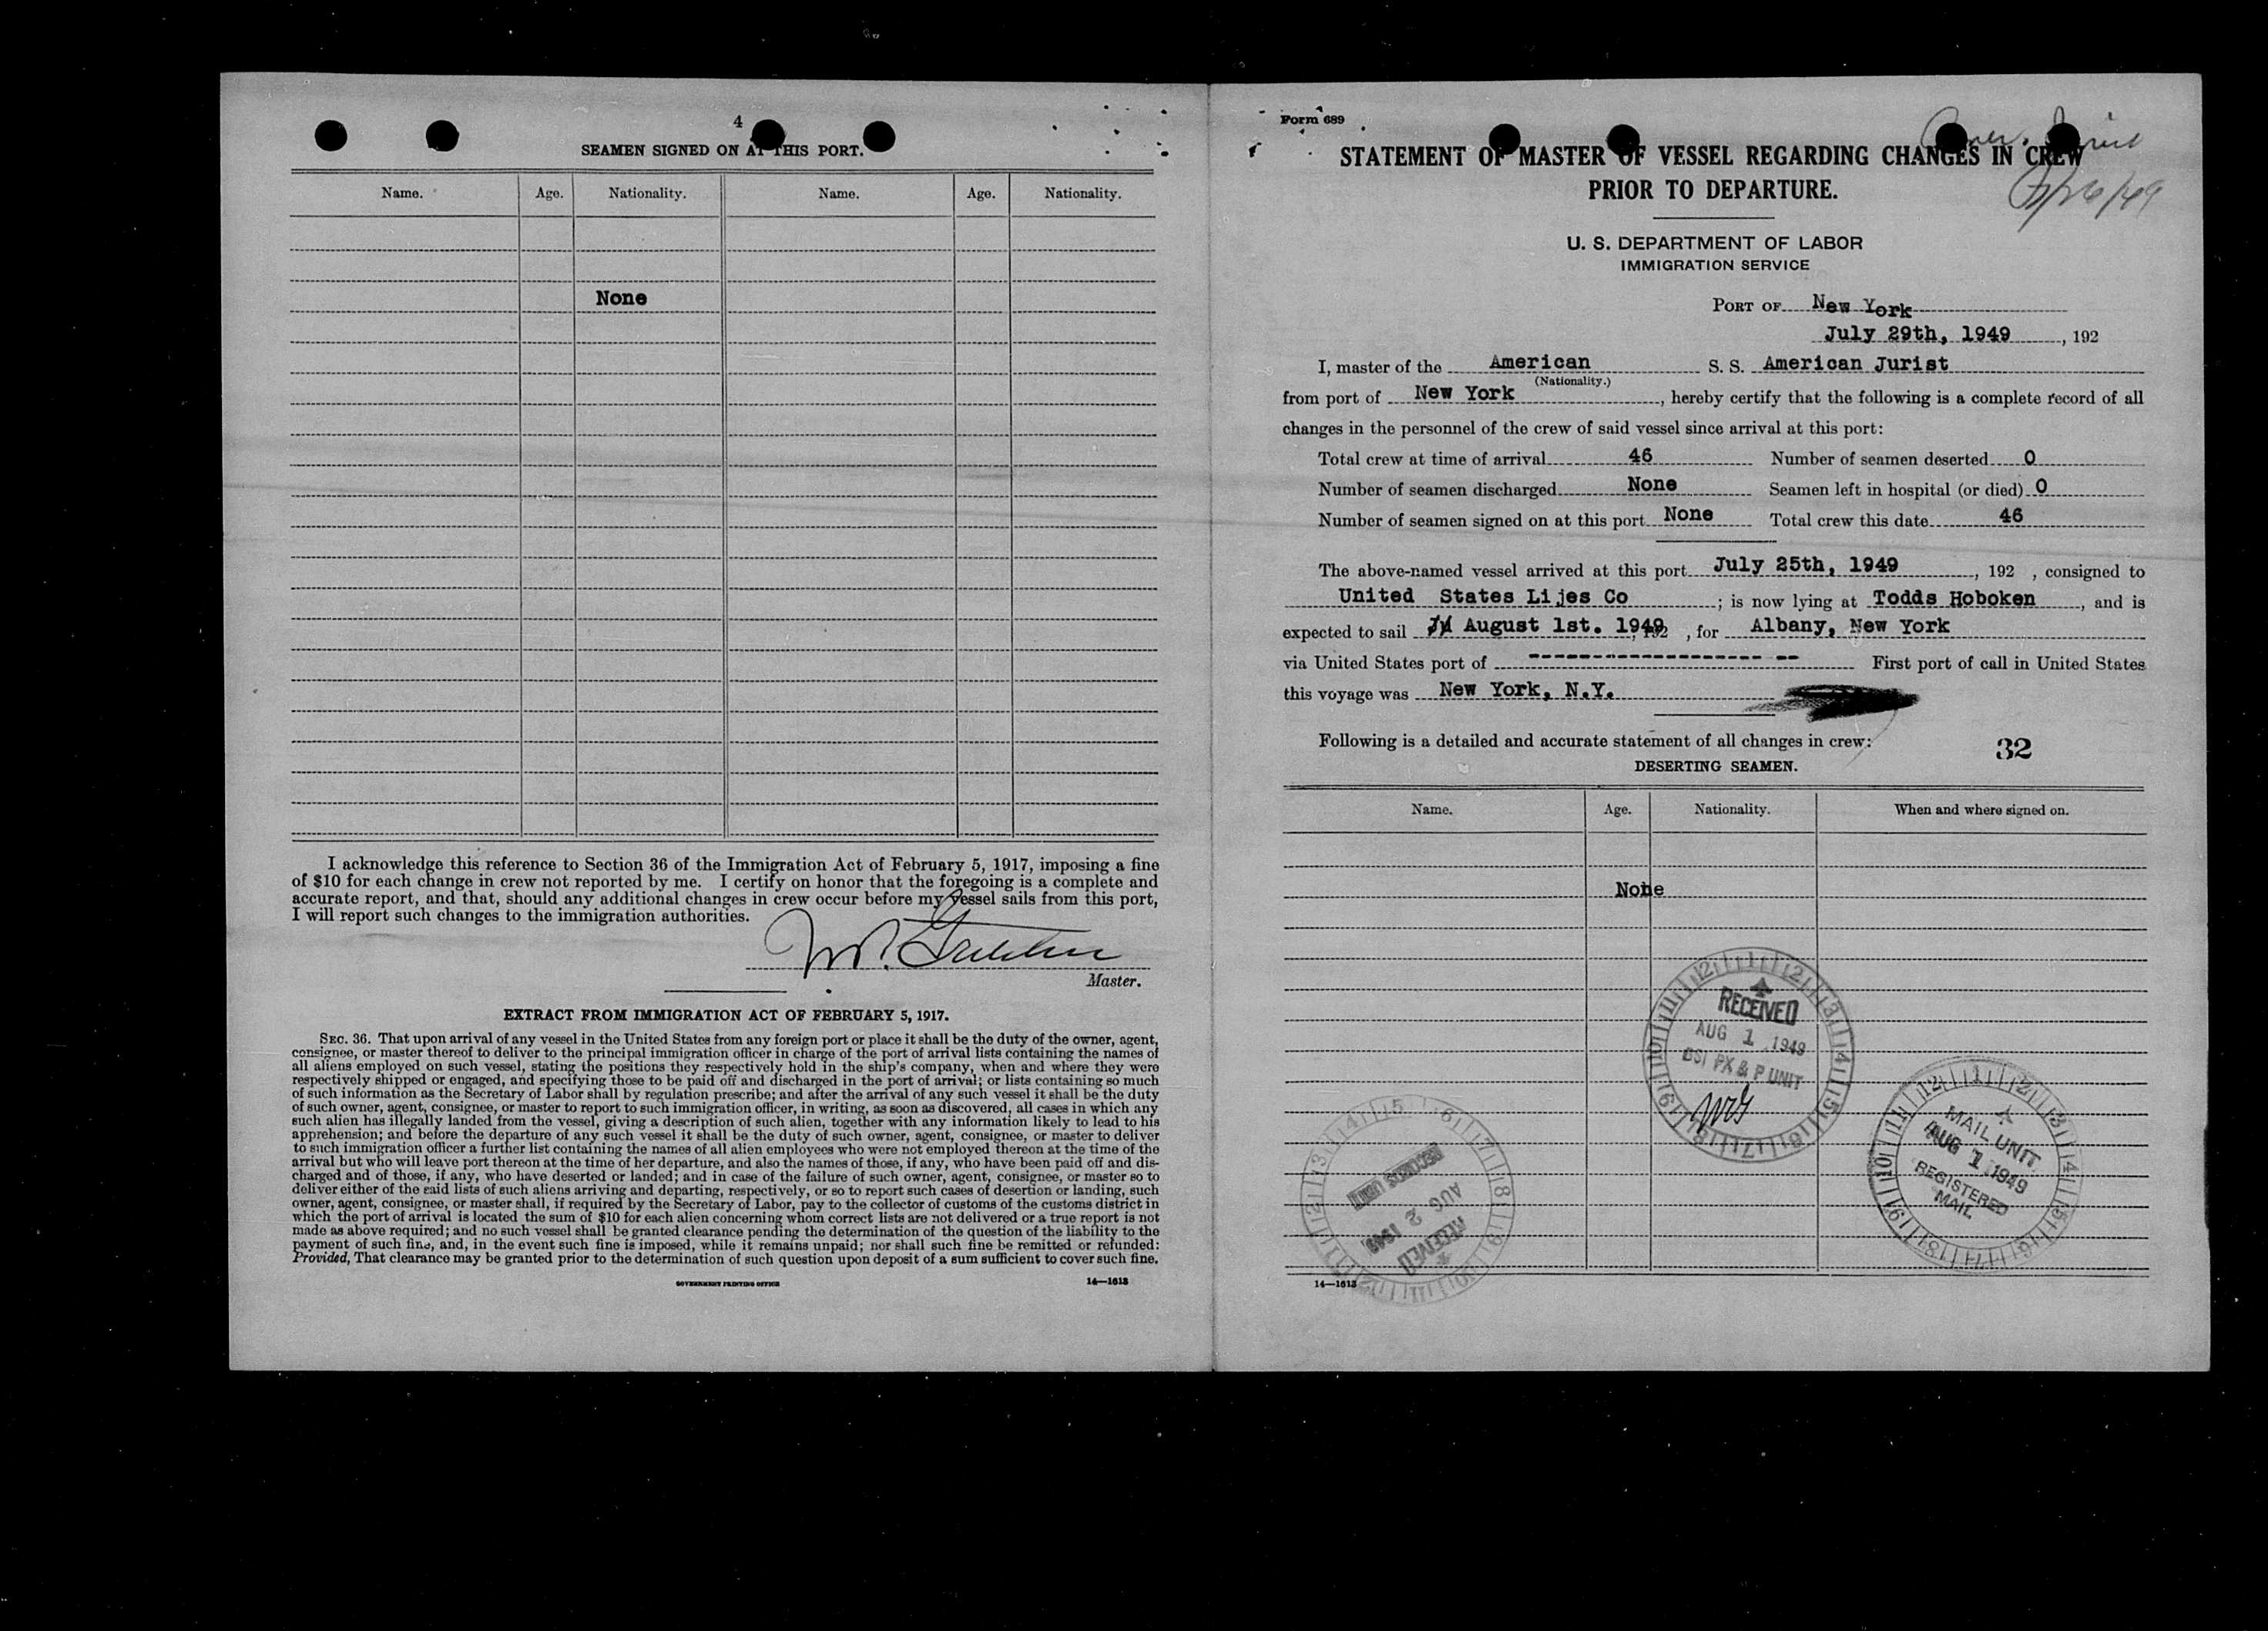 4
SEAMEN SIGNED ON AT THIS PORT.
Name. Age. Nationality. Name. Age. Nationality.
None
I acknowledge this reference to Section 36 of the Immigration Act of February 5, 1917, imposing a fine
of $10 for each change in crew not reported by me. I certify on honor that the foregoing is a complete and
accurate report, and that, should any additional changes in crew occur before my vessel sails from this port,
I will report such changes to the immigration authorities.
Master.
EXTRACT FROM IMMIGRATION ACT OF FEBRUARY 5, 1917.
SEC. 36. That upon arrival of any vessel in the United States from any foreign port or place it shall be the duty of the owner, agent,
consignee, or master thereof to deliver to the principal immigration officer in charge of the port of arrival lists containing the names of
all aliens employed on such vessel, stating the positions they respectively hold in the ship's company, when and where they were
respectively shipped or engaged, and specifying those to be paid off and discharged in the port of arrival; or lists containing so much
of such information as the Secretary of Labor shall by regulation prescribe; and after the arrival of any such vessel it shall be the duty
of such owner, agent, consignee, or master to report to such immigration officer, in writing, as soon as discovered, all cases in which any
such alien has illegally landed from the vessel, giving a description of such alien, together with any information likely to lead to his
apprehension; and before the departure of any such vessel it shall be the duty of such owner, agent, consignee, or master to deliver
to such immigration officer a further list containing the names of all alien employees who were not employed thereon at the time of the
arrival but who will leave port thereon at the time of her departure, and also the names of those, if any, who have been paid off and dis-
charged and of those, if any, who have deserted or landed; and in case of the failure of such owner, agent, consignee, or master so to
deliver either of the said lists of such aliens arriving and departing, respectively, or so to report such cases of desertion or landing, such
owner, agent, consignee, or master shall, if required by the Secretary of Labor, pay to the collector of customs of the customs district in
which the port of arrival is located the sum of $10 for each alien concerning whom correct lists are not delivered or a true report is not
made as above required; and no such vessel shall be granted clearance pending the determination of the question of the liability to the
payment of such fine, and, in the event such fine is imposed, while it remains unpaid; nor shall such fine be remitted or refunded:
Provided, That clearance may be granted prior to the determination of such question upon deposit of a sum sufficient to cover such fine.
GOVERNMENT PRINTING OFFICE 14—1613
Form 689
STATEMENT OF MASTER OF VESSEL REGARDING CHANGES IN CREW
PRIOR TO DEPARTURE.
U. S. DEPARTMENT OF LABOR
IMMIGRATION SERVICE
PORT OF New York
July 29th, 1949, 192
I, master of the American S. S. American Jurist
(Nationality.)
from port of New York, hereby certify that the following is a complete record of all
changes in the personnel of the crew of said vessel since arrival at this port:
Total crew at time of arrival 46 Number of seamen deserted 0
Number of seamen discharged None Seamen left in hospital (or died) 0
Number of seamen signed on at this port None Total crew this date 46
The above-named vessel arrived at this port July 25th, 1949, 192 , consigned to
United States Lijes Co; is now lying at Todds Hoboken, and is
expected to sail August 1st. 1949, 192 , for Albany, New York
via United States port of ---------- First port of call in United States
this voyage was New York, N.Y.
Following is a detailed and accurate statement of all changes in crew:
32
DESERTING SEAMEN.
Name. Age. Nationality. When and where signed on.
None
RECEIVED
AUG 1 1949
BSI PX & P UNIT
MAIL UNIT
AUG 1 1949
REGISTERED
MAIL
RECORDS UNIT
AUG 2 1949
RECEIVED
14—1613